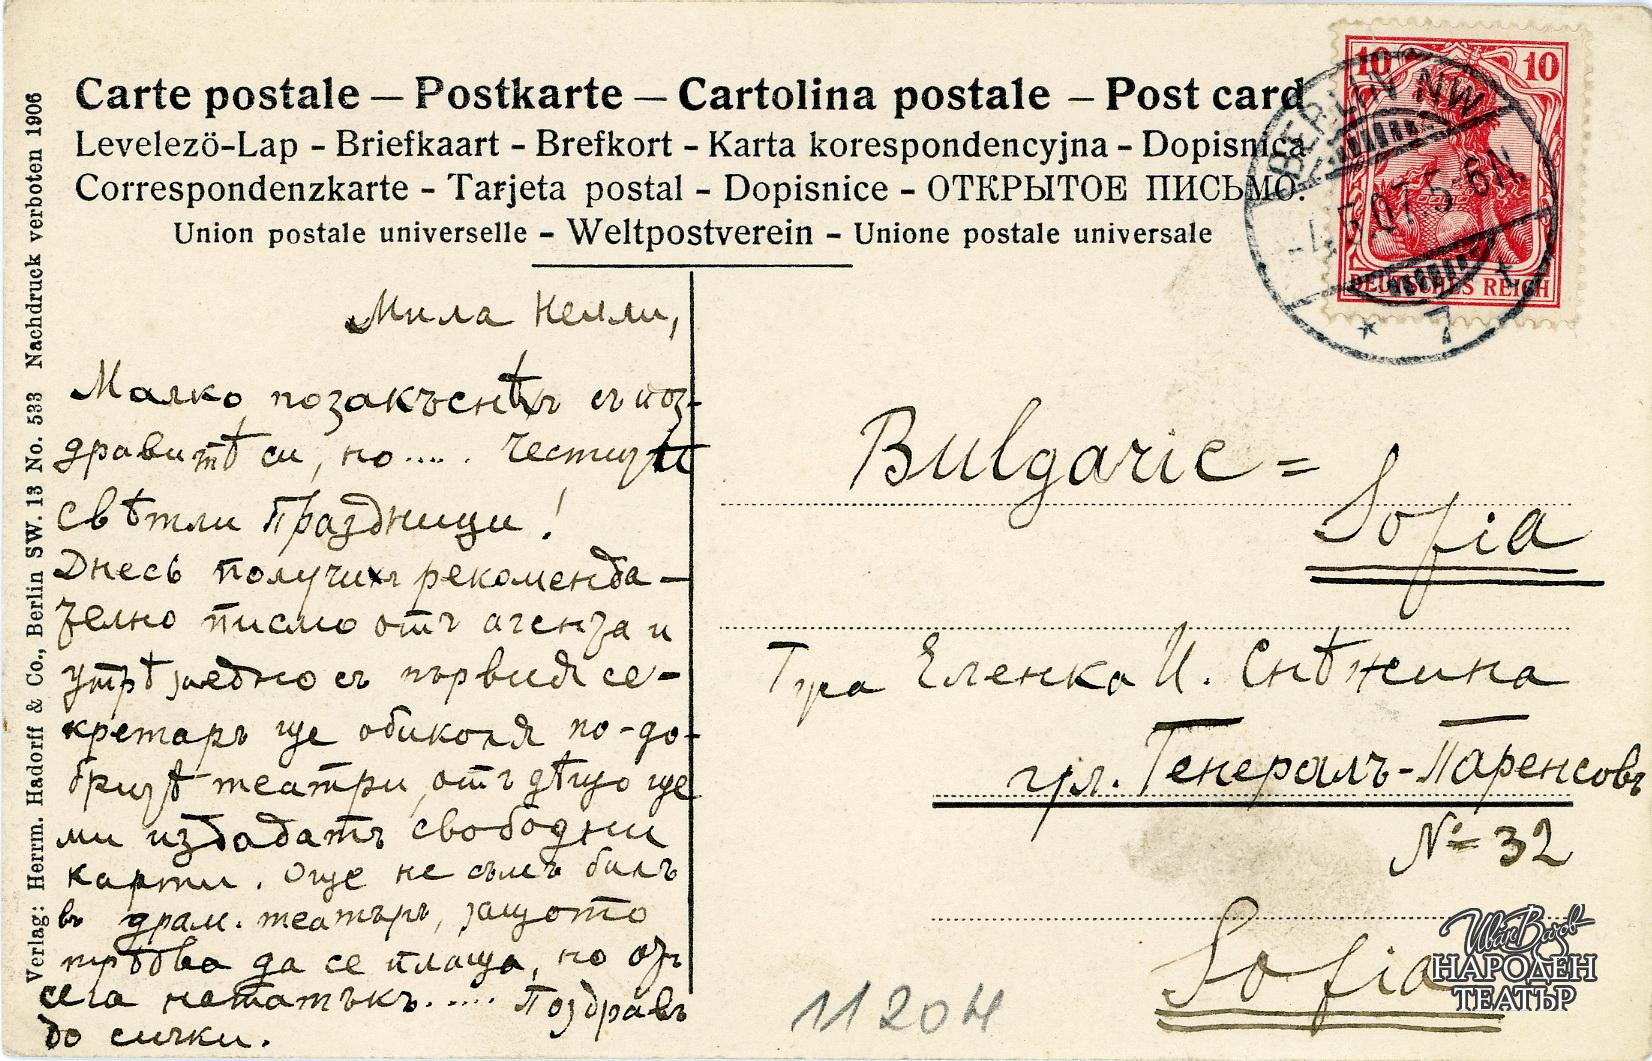 Carte postale – Postkarte – Cartolina postale – Post card
Levelezö-Lap - Briefkaart - Brefkort - Karta korespondencyjna - Dopisnica
Correspondenzkarte - Tarjeta postal - Dopisnice - ОТКРЫТОЕ ПИСЬМО.
Union postale universelle – Weltpostverein – Unione postale universale
Verlag: Herrm. Hadorff & Co., Berlin SW. 13 No. 533 Nachdruck verboten 1906
10 10
DEUTSCHES REICH
BERLIN NW
-4.5.07.5-6N.
* 7 t
Мила Нелли,
Малко позакъснѣхъ съ поз-
дравитѣ си, но..... честитѣ
свѣтли Праздници!
Днесь получихъ рекоменда-
телно писмо отъ агента и
утрѣ заедно съ първия се-
кретаръ ще обиколя по-до-
бритѣ театри, отъ дѣто ще
ми издадатъ свободни
карти. Още не съмъ билъ
въ драм. театъръ, защото
трѣбва да се плаща, но отъ
сега нататъкъ..... Поздравъ
до сички.
Bulgarie =
Sofia
Г-жа Еленка И. Снѣжина
ул. Генералъ-Паренсовъ
№ 32
Sofia
11204
Иван Вазов
НАРОДЕН
ТЕАТЪР